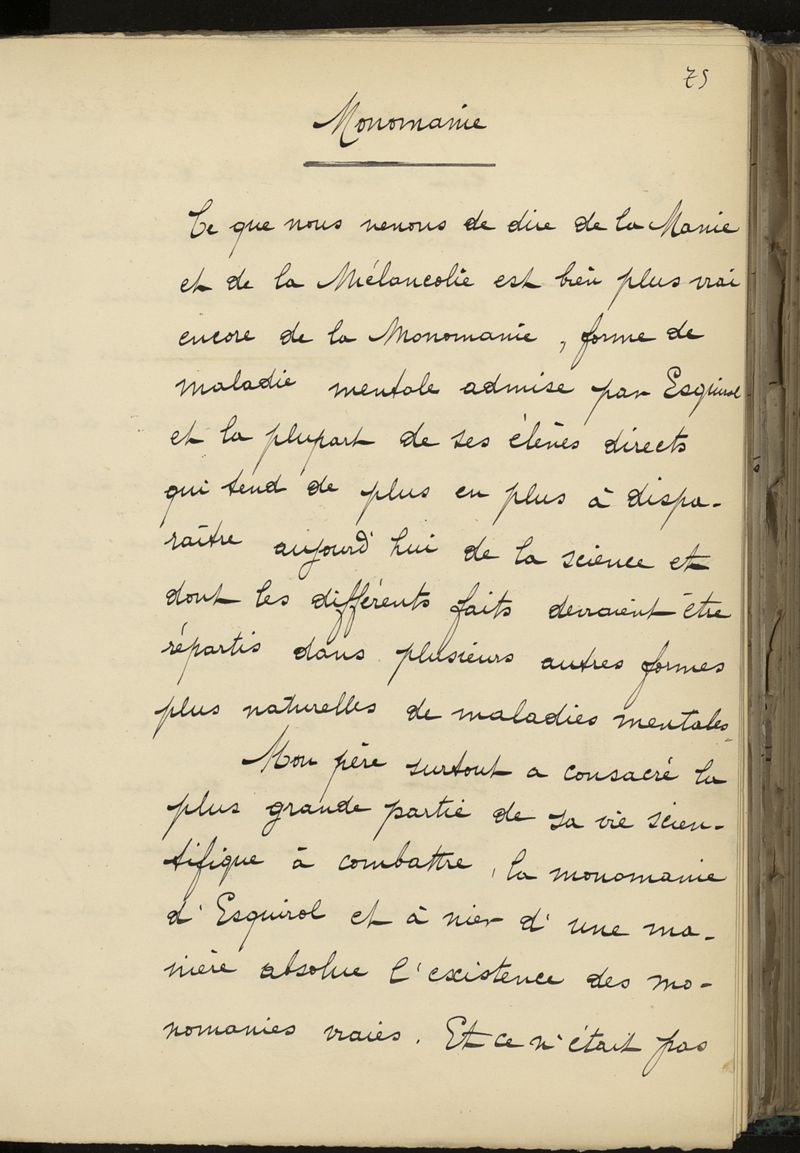 75
Monomanie
Ce que nous venons de dire de la Manie
et de la Mélancolie est bien plus vrai
encore de la Monomanie, forme de
maladie mentale admise par Esquirol
et la plupart de ses élèves directs
qui tend de plus en plus à dispa-
raître aujourd'hui de la science et
dont les différents faits devraient être
répartis dans plusieurs autres formes
plus naturelles de maladies mentales.
Mon père surtout a consacré la
plus grande partie de sa vie scien-
tifique à combattre, la monomanie
d'Esquirol et à nier d'une ma-
nière absolue l'existence des mo-
nomanies vraies. Et ce n'était pas